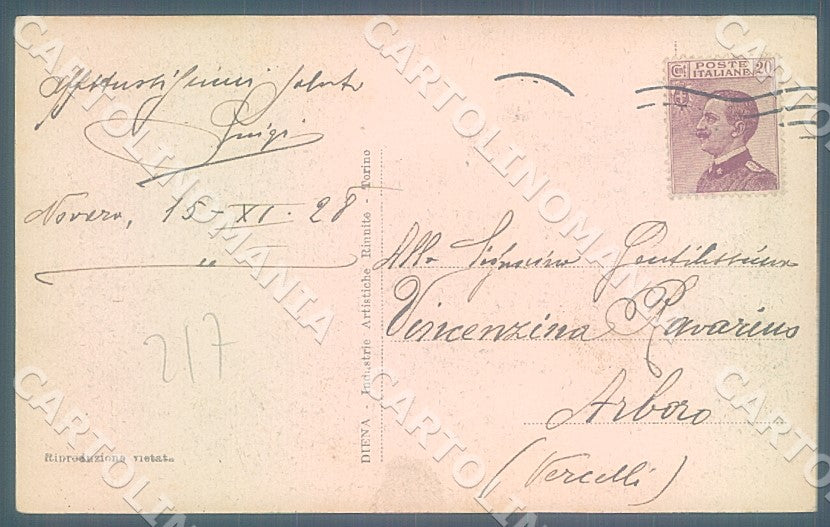 Affettuosissimi saluti
Luigi
Novara, 15-XI-28
217
Riproduzione vietata
DIENA - Industrie Artistiche Riunite - Torino
Cmi POSTE ITALIANE 20
Alla Signorina Gentilissima
Vincenzina
Arboro
(Vercelli)
CARTOLINOMANIA
CARTOLINOMANIA
CARTOLINOMANIA
CARTOLINOMANIA
CARTOLINOMANIA
CARTOLINOMANIA